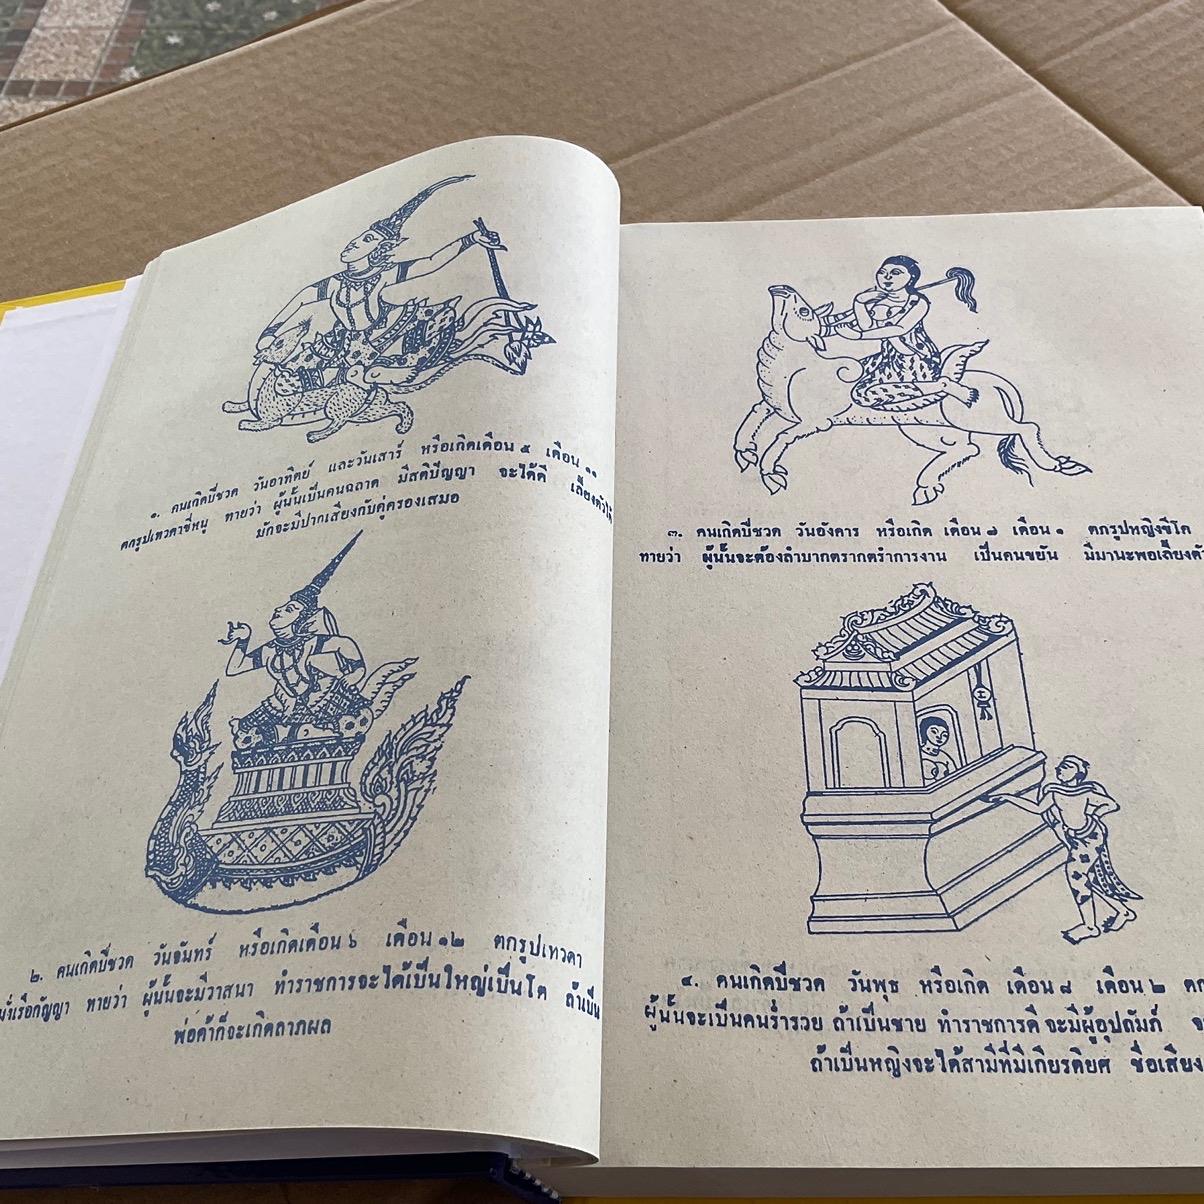 ๑. คนเกิดปีชวด วันอาทิตย์ และวันเสาร์ หรือเกิดเดือน ๕ เดือน ๑๑
ตกรูปเทวดาขี่หนู ทายว่า ผู้นั้นเป็นคนฉลาด มีสติปัญญา จะได้ดี เลี้ยงตัวได้
มักจะมีปากเสียงกับคู่ครองเสมอ
๒. คนเกิดปีชวด วันจันทร์ หรือเกิดเดือน ๖ เดือน ๑๒ ตกรูปเทวดา
นั่งเรือกัญญา ทายว่า ผู้นั้นจะมีวาสนา ทำราชการจะได้เป็นใหญ่เป็นโต ถ้าเป็น
พ่อค้าก็จะเกิดลาภผล
๓. คนเกิดปีชวด วันอังคาร หรือเกิด เดือน ๗ เดือน ๑ ตกรูปหญิงขี่โค
ทายว่า ผู้นั้นจะต้องลำบากตรากตรำการงาน เป็นคนขยัน มีมานะพอเลี้ยง
๔. คนเกิดปีชวด วันพุธ หรือเกิด เดือน ๘ เดือน ๒
ผู้นั้นจะเป็นคนร่ำรวย ถ้าเป็นชาย ทำราชการดี จะมีผู้อุปถัมภ์
ถ้าเป็นหญิงจะได้สามีที่มีเกียรติยศ ชื่อเสียง